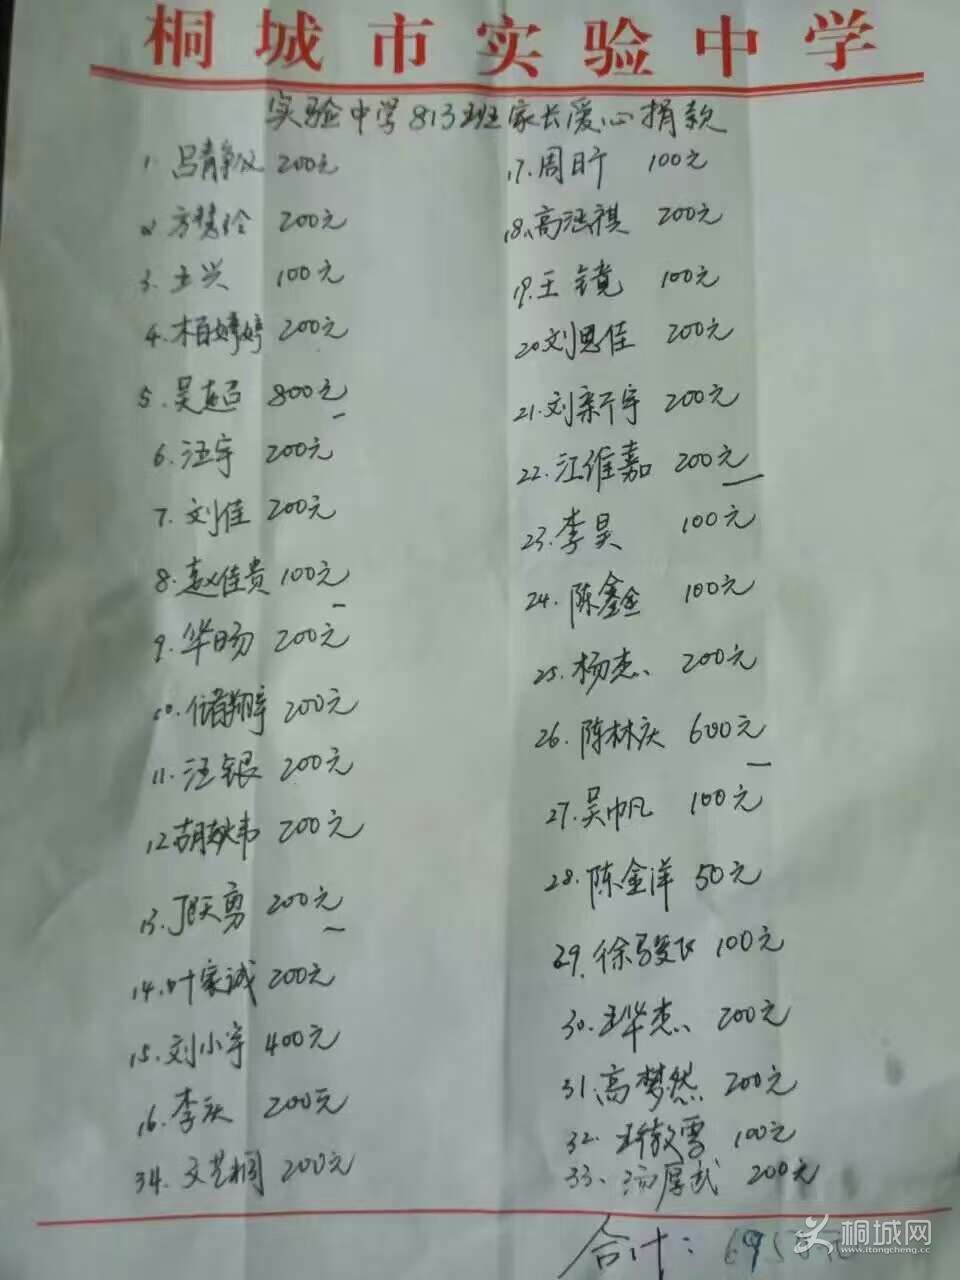 桐城市实验中学
实验中学813班家长爱心捐款
1. 吕静文 200元
2. 方慧玲 200元
3. 王兴 100元
4. 柏婷婷 200元
5. 吴超 800元
6. 汪宇 200元
7. 刘佳 200元
8. 赵佳贵 100元
9. 华旸 200元
10. 储翔宇 200元
11. 汪银 200元
12. 胡 200元
13. 勇 200元
14. 叶家诚 200元
15. 刘小宇 400元
16. 李庆 200元
34. 文艺桐 200元
17. 周昕 100元
18. 高 祺 200元
19. 王镜 100元
20 刘思佳 200元
21. 刘新宇 200元
22. 江维嘉 200元
23. 李昊 100元
24. 陈鑫 100元
25. 杨杰 200元
26. 陈林庆 600元
27. 吴帆 100元
28. 陈金洋 50元
29. 徐骏飞 100元
30. 王华杰 200元
31. 高梦然 200元
32. 雪 100元
33、汤厚武 200元
合计: 6950元
桐城网
www.itongcheng.cc